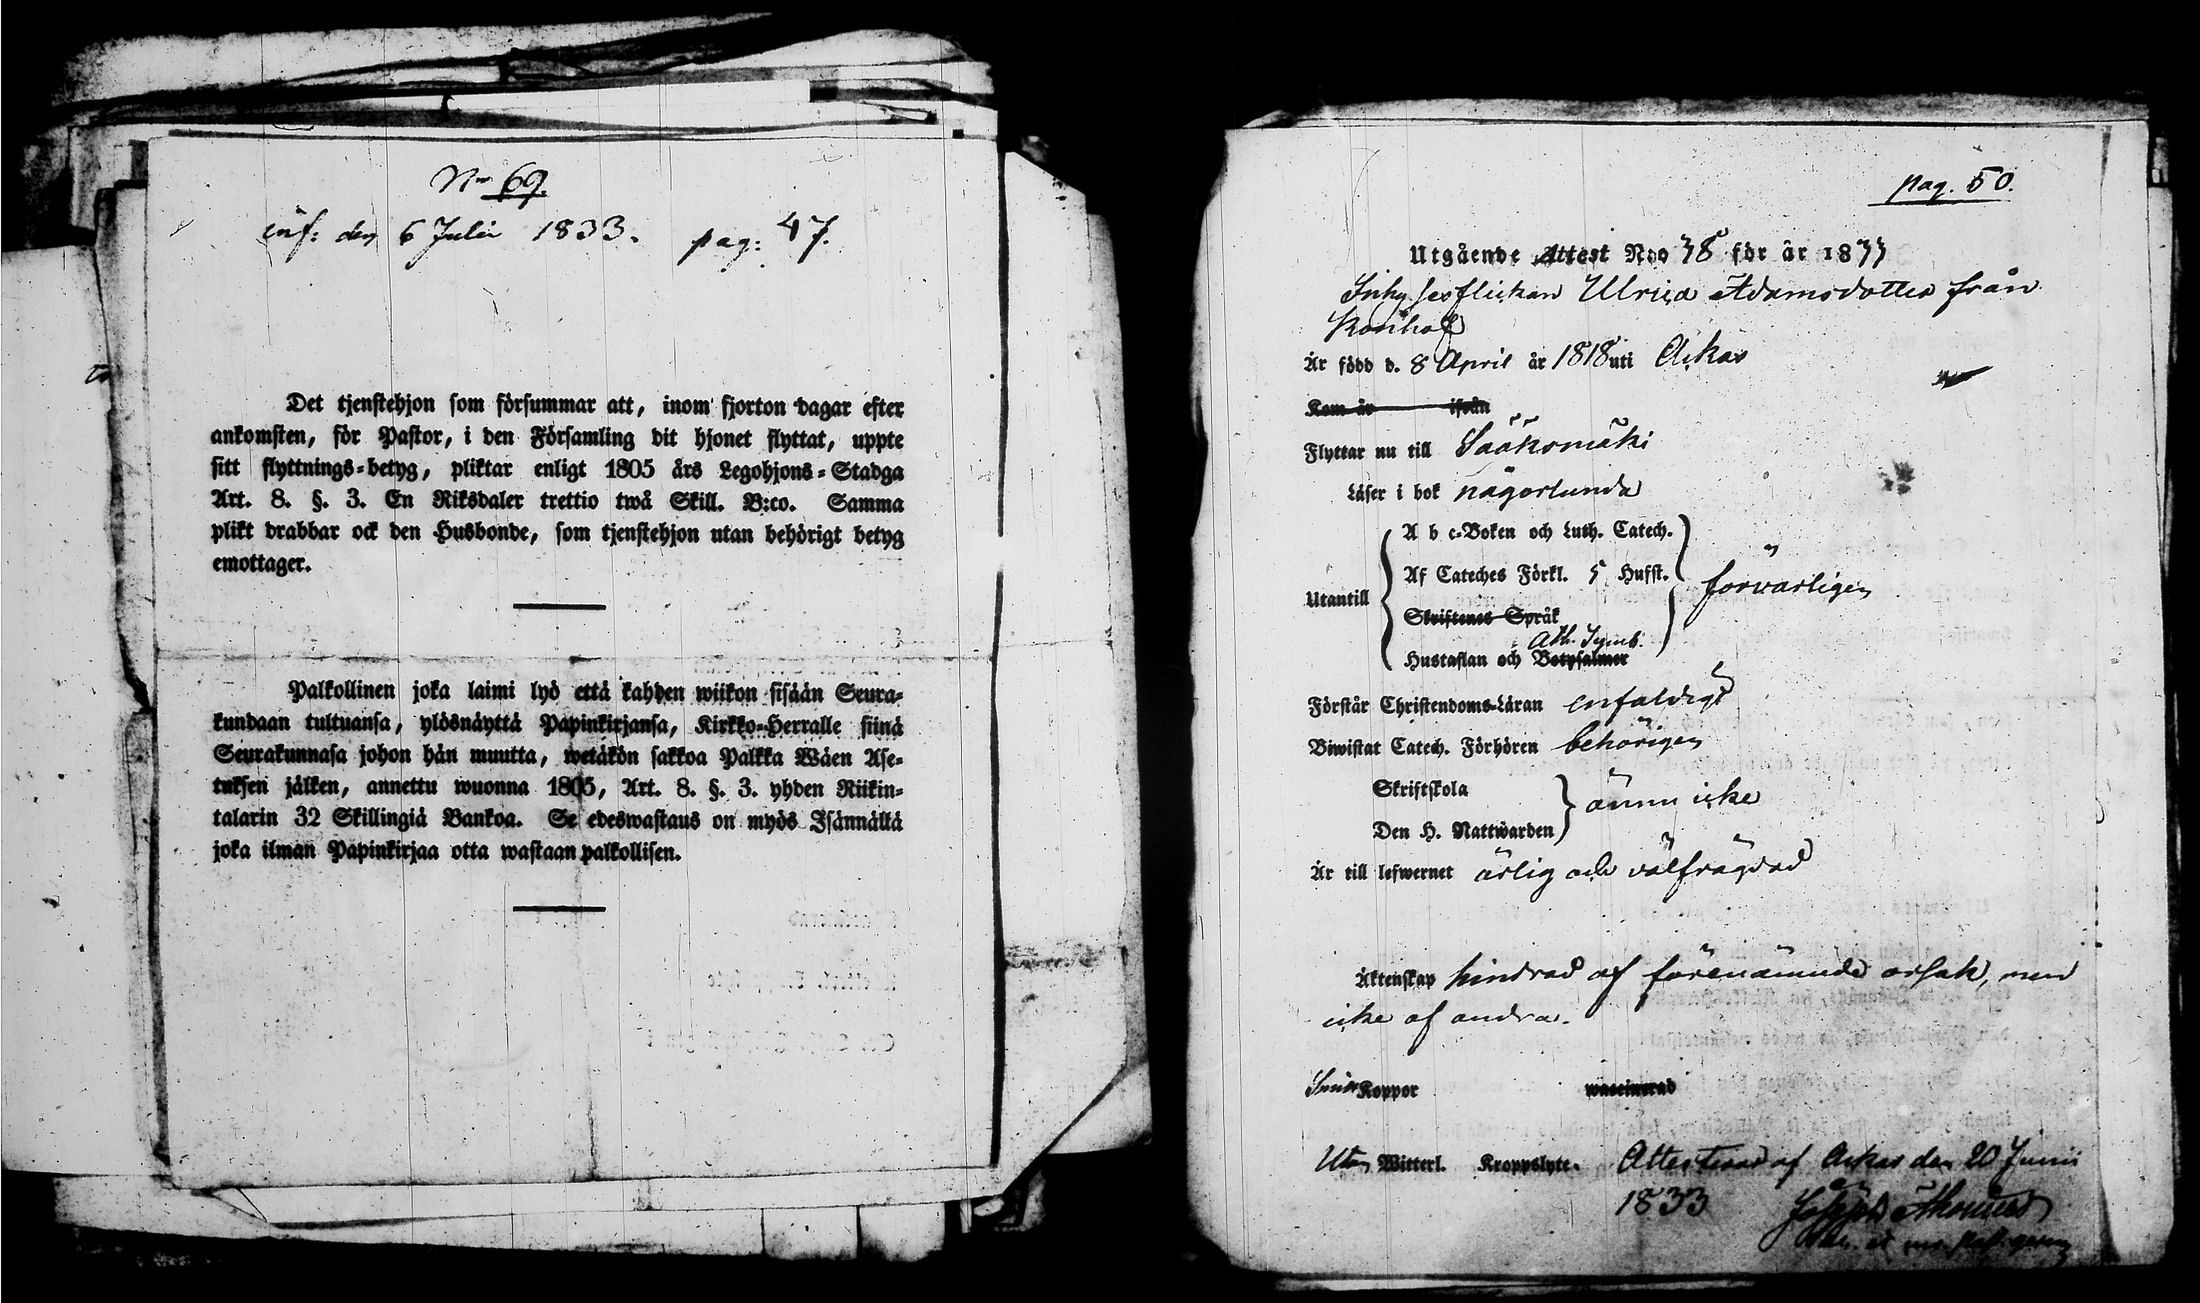 No 69.
inf: den 6 Julii 1833. pag: 47.
Det tjenstehjon som försummar att, inom fjorton dagar efter
ankomsten, för Pastor, i den Församling dit hjonet flyttat, uppte
sitt flyttnings-betyg, pliktar enligt 1805 års Legohjons-Stadga
Art. 8. §. 3. En Riksdaler trettio twå Skill. B:co. Samma
plikt drabbar ock den Husbonde, som tjenstehjon utan behörigt betyg
emottager.
Palkollinen joka laimi lyö että kahden wiikon sisään Seura-
kundaan tultuansa, ylösnäyttä Papinkirjansa, Kirkko-Herralle siinä
Seurakunnasa johon hän muutta, wetäkön sakkoa Palkka Wäen Ase-
tuksen jälken, annettu wuonna 1805, Art. 8. §. 3. yhden Riikin-
talarin 32 Skillingiä Bankoa. Se edeswastaus on myös Isännällä
joka ilman Papinkirjaa otta wastaan palkollisen.
pag. 50.
Utgående Attest No 38 för år 1833
Inhysesflickan Ulrica Adamsdotter från
Konhof
Är född d. 8 April år 1818 uti Ackas
Kom år ifrån
Flyttar nu till Sääksmäki
Läser i bok någorlunda
Utantill
A b c-Boken och Luth. Catech.
Af Cateches Förkl. 5 Hufst.
förvarligen
Skriftenes Språk
Ath. Symb.
Hustaflan och Botpsalmer
Förstår Christendoms-Läran enfaldigt
Biwistat Catech. Förhören behörigen
Skriftskola
ännu icke
Den H. Nattwarden
Är till lefwernet ärlig och välfrägdad
Äktenskap hindrad af förenämnde orsak, men
icke af andra.
Koppor waccinerad
Utan Witterl. Kroppslyte. Attesterad af Ackas den 20 Junii
1833